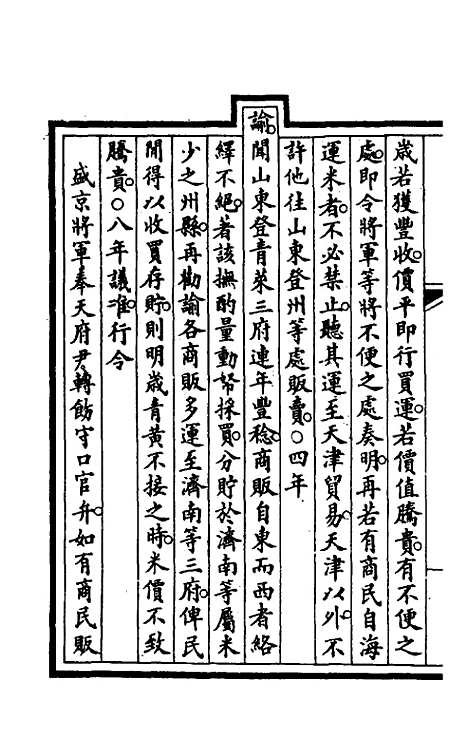 歲若獲豐收。價平即行買運。若價值騰貴。有不便之
處。即令將軍等將不便之處奏明。再若有商民自海
運米者。不必禁止。聽其運至天津貿易。天津以外。不
許他往山東登州等處販賣。○四年
諭。聞山東登青萊三府連年豐稔。商販自東而西者絡
繹不絕。著該撫酌量動帑採買。分貯於濟南等屬米
少之州縣。再勸諭各商販多運至濟南等三府。俾民
閒得以收買存貯。則明歲青黃不接之時。米價不致
騰貴。○八年議准。行令
盛京將軍奉天府尹。轉飭守口官弁。如有商民販